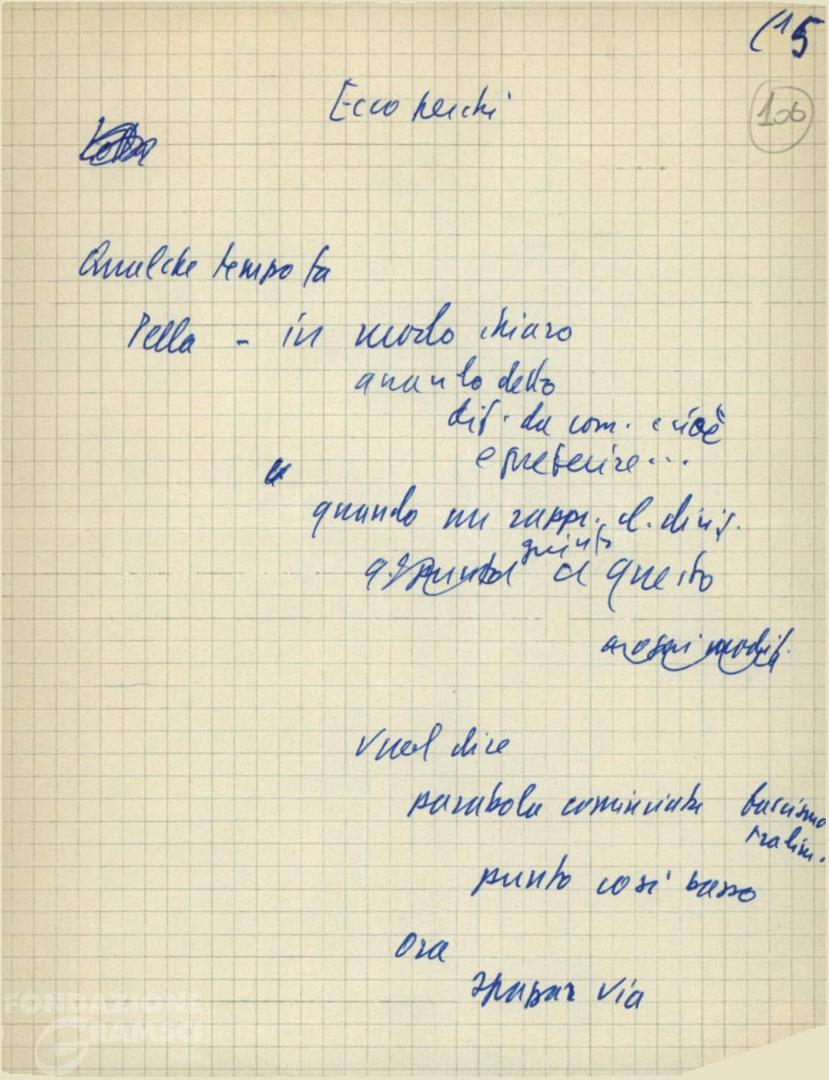 (15
106
Ecco perché
Qualche tempo fa
Pella - in modo chiaro
quando detto
dif. da com. cioè
e preferire...
quando un rappr. d. dirig.
giunto
a questo
Vuol dire
parabola cominciata fascismo
punto così basso
Ora
spazzar via
FONDAZIONE
GRAMSCI